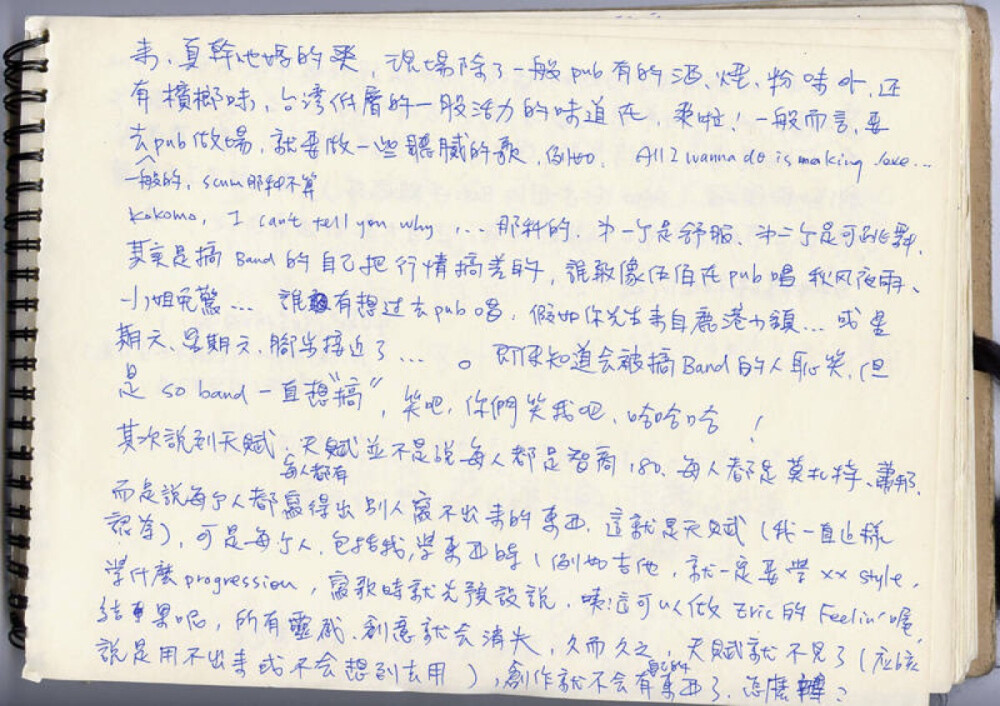 来,真幹他媽的爽,現場除了一般pub有的酒、煙、粉味外,还
有檳榔味,台湾低層的一股活力的味道在,爽啦!一般而言,要
去pub做場,就要做一些聽膩的歌,例如. All I wanna do is making love...
一般的,scum那种不算
Kokomo, I can't tell you why, ... 那种的,第一个是舒服、第二个是可跳舞.
其实是搞Band的自己把行情搞差的,誰敢像伍佰在pub唱秋风夜雨、
小姐免驚... 誰有想过去pub唱,假如你先生来自鹿港小鎮... 或星
期天,星期天,腳步接近了... 。即使知道会被搞Band的人恥笑,但
是so band一直想"搞",笑吧,你們笑我吧,哈哈哈!
其次說到天賦,天賦並不是說每人都是智商180,每人都是莫扎特、蕭邦.
每人都有
而是說每个人都寫得出別人寫不出来的東西,這就是天賦(我一直这樣
認為),可是每个人,包括我,学東西時(例如吉他,就一定要学xx style,
学什麼progression,寫歌時就先預設說,咦!这可以做Eric的Feelin'喔,
結果呢,所有靈感、創意就会消失,久而久之,天賦就不見了(应該
說是用不出来或不会想到去用),創作就不会有東西了,怎麼轉?